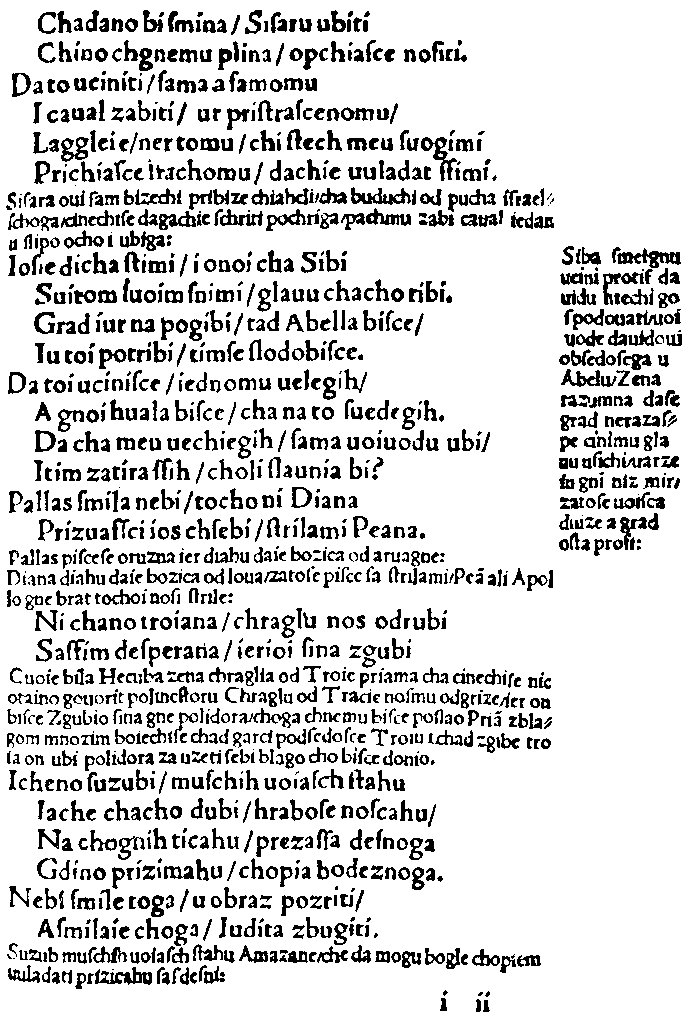 Chadano bí ſmina / Siſaru ubítí
Chino chgnemu plina / opchiaſce noſiti.
Da to uciníti / ſama a ſamomu
I caual zabití / ur priſtraſcenomu /
Lagglei e / ner tomu / chi ſtech meu ſuogimí
Prichíaſce ítachomu / dachie uuladat ſſimí.
Siſara oui ſam bizechi pribize chiaheli / cha buduchi od pucha iſrael⸗
ſchoga / cinechiſe dagachie ſchriti pochriga / pachmu zabi caual iedan
u ſlipo ocho i ubíga:
Ioſie dicha ſtimi / i onoi cha Sibí
Suitom ſuoim ſnimí / glauu chacho ribí.
Grad iur na pogibí / tad Abella bíſce /
Iu toí potribí / timſe ſlodobiſce.
Da toí uciniſce / iednomu uelegíh /
A gnoí huala bíſce / cha na to ſuedegíh.
Da cha meu uechiegíh / ſama uoiuodu ubí /
Itím zatira ſſih / choli ſlaunia bí?
Pallas ſmila nebí / tocho ní Diana
Prizuaſſci ios chſebí / ſtrilamí Peana.
Pallas piſceſe oruzna ier diahu daſe bozica od aruagne:
Diana diahu daſe bozica od loua / zatoſe piſce ſa ſtrilami / Peā ali Apol
lo gne brat tochoi noſi ſtrile:
Ní chano troiana / chraglu nos odrubí
Saſſim deſperana / íerioí ſina zgubí
Cuoie bila Hecuba zena chraglia od Troie priama cha cinechiſe nic
otaino gouorit polineſtoru Chraglu od Tracie noſmu odgrize / ier on
biſce Zgubio ſina gne polidora / choga chnemu biſce poſlao Priā zbla⸗
gom mnozim boiechiſe chad garci podſedoſce Troiu i chad zgibe tro
ia on ubi polidora za uzeti ſebi blago cho biſce donio.
Icheno ſuzubí / muſchih uoiaſch ſtahu
Iache chacho dubí / hraboſe noſcahu /
Na chognih ticahu / prezaſſa deſnoga
Gdíno prizimahu / chopia bodeznoga.
Nebí ſmíle toga / u obraz pozríti /
Aſmilaíe choga / Iudíta zbugítí.
Suzub muſchih uoiaſch ſtahu Amazane / che da mogu bogle chopiem
uuladati prizicahu ſaſ deſni:
Siba ſmeignu
ucini protif da
uidu htechi go
ſpodouati / uoi
uode dauidoui
obſedoſega u
Abelu / Zena
razumna daſe
grad nerazaſ⸗
pe cinimu gla
uu uſichi / urarze
ſu gni niz mir /
zatoſe uoiſca
duize a grad
oſta proſt:
i íí